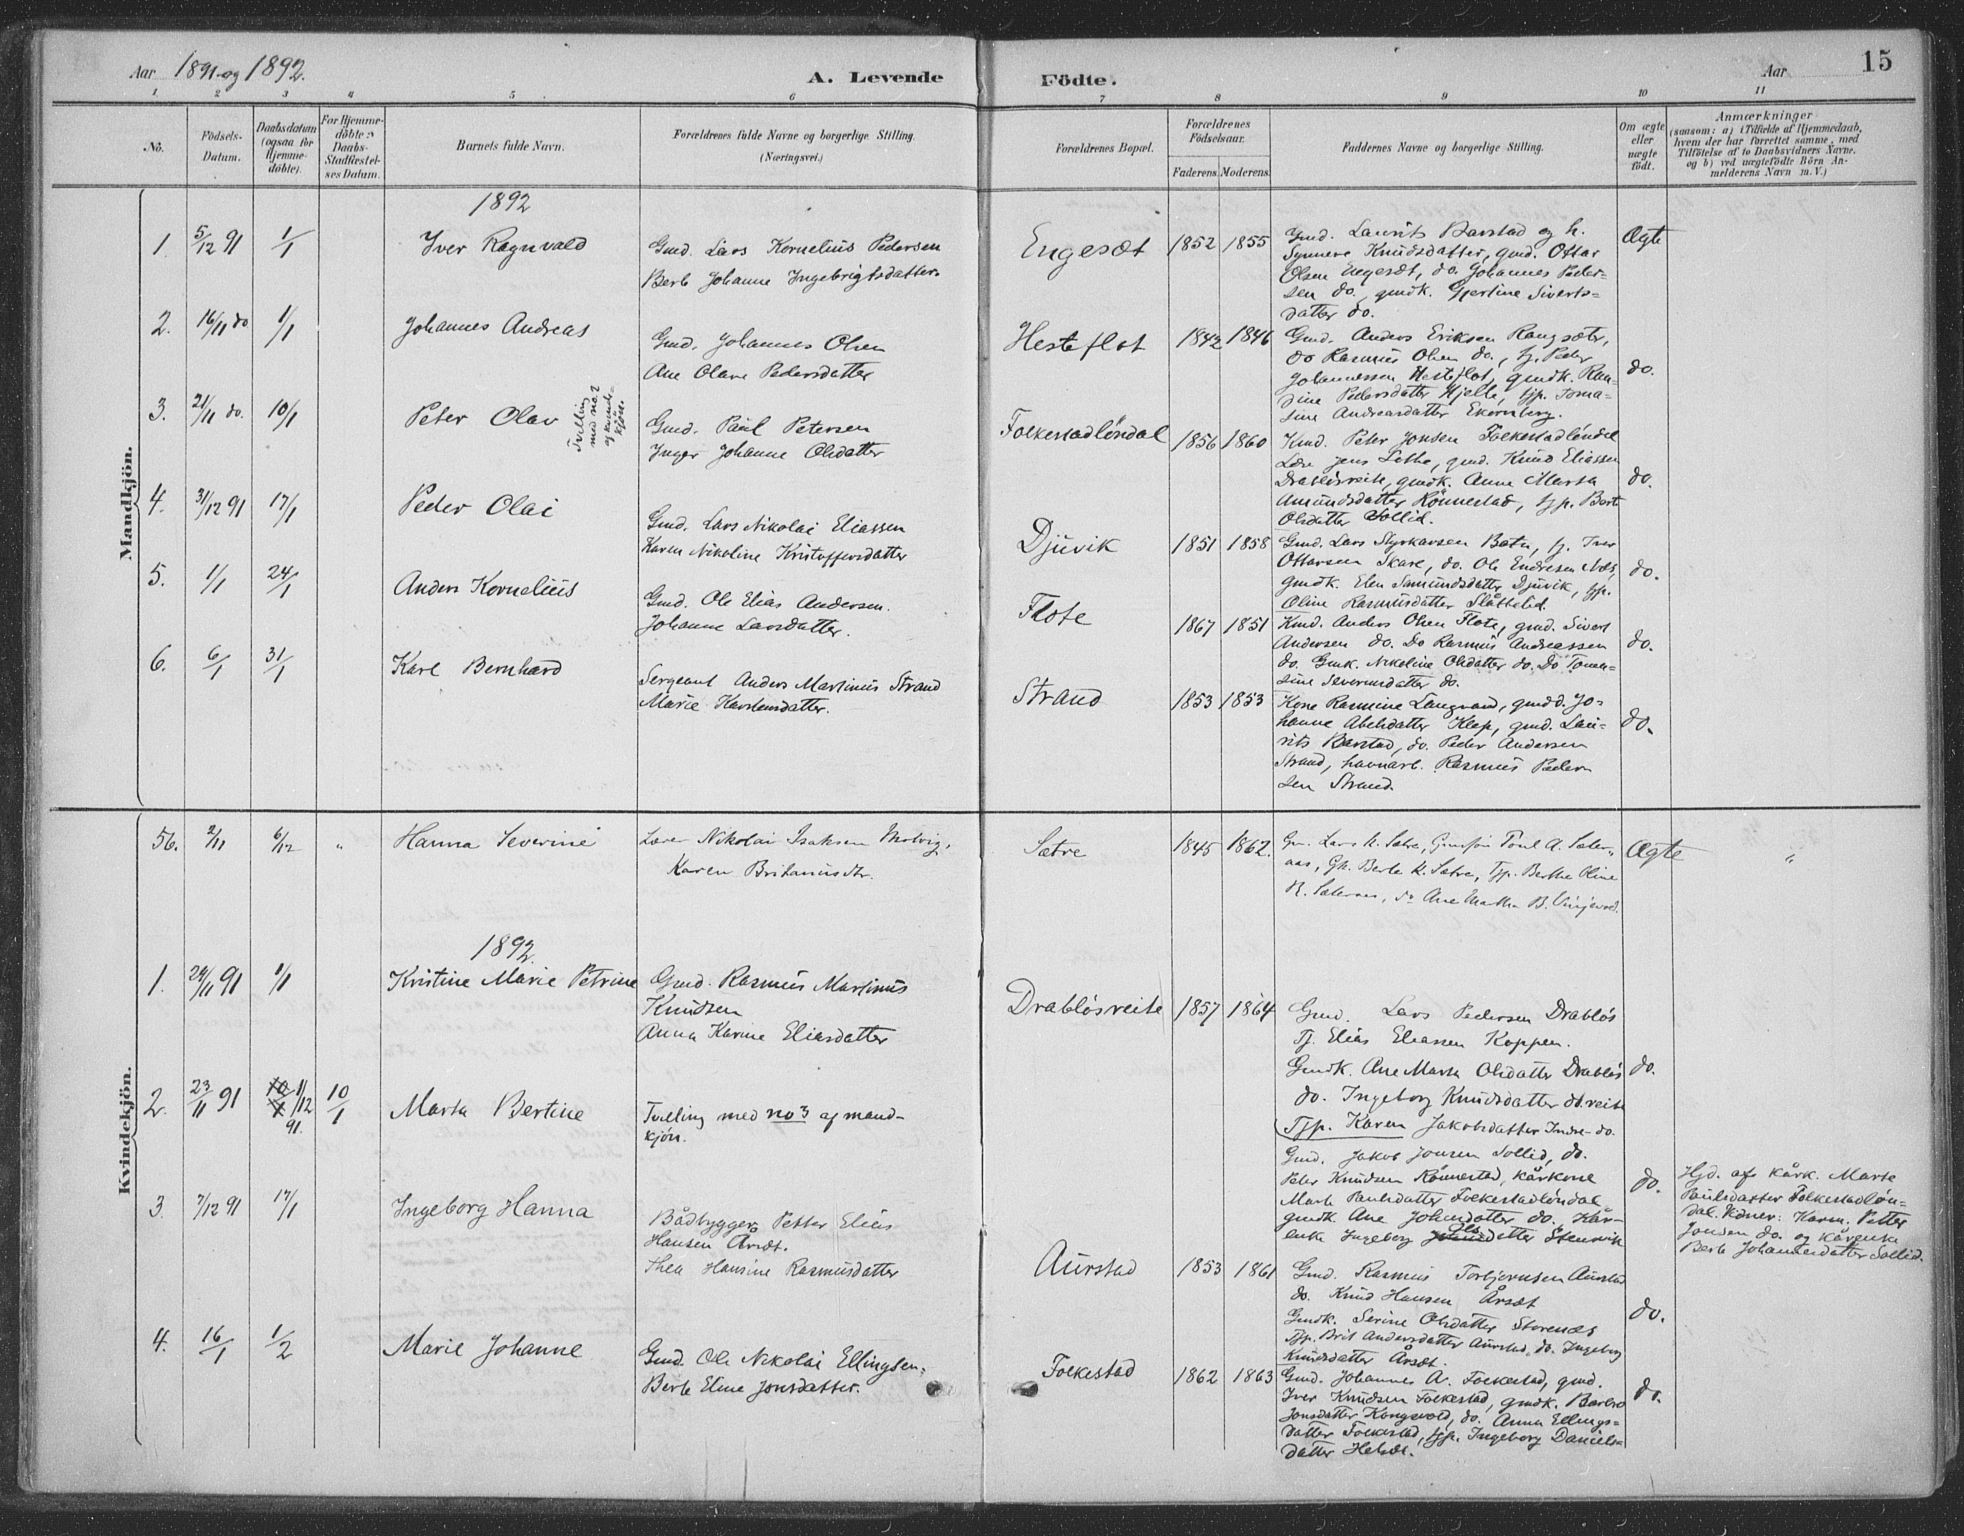 Aar 1891 og 1892.
A. Levende
Födte.
Aar
15
1 2 3 4 5 6 7 8 9 10 11
No.
Födsels-
Datum.
Daabsdatum
(ogsaa for
Hjemme-
döbte).
For Hjemme-
döbte:
Daabs-
Stadfæstel-
ses Datum.
Barnets fulde Navn.
Forældrenes fulde Navne og borgerlige Stilling.
(Næringsvei.)
Forældrenes Bopæl.
Forældrenes
Födselsaar.
Faderens.
Moderens.
Faddernes Navne og borgerlige Stilling.
Om ægte
eller
uægte
födt.
Anmærkninger
(saasom: a) i Tilfælde af Hjemmedaab,
hvem der har forrettet samme, med
Tilföielse af to Daabsvidners Navne.
og b) ved uægtefödte Börn An-
melderens Navn m. V.)
Mandkjön.
1892
1. 5/12 91 1/1 Iver Ragnvald
Gmd. Lars Kornelius Pedersen
Berte Johanne Ingebrigtsdatter.
Engesæt 1852 1855
Gmd. Laurits Barstad og h.
Synneve Knudsdatter, gmd. Ottar
Olsen Engesæt, do. Johannes Peder-
sen do, gmdk. Gjertine Siverts-
datter do.
Ægte
2. 16/11 do 1/1 Johannes Andreas
Gmd. Johannes Olsen
Ane Olave Pedersdatter
Hesteflot 1842 1846
Gmd. Anders Eriksen Rangsæter,
do Rasmus Olsen do., tj. Peder
Johannessen Hesteflot, gmdk. Ran-
dine Pedersdatter Hjelle, tjp. Toma-
sine Andreasdatter Ekornberg.
do.
3. 21/11 do. 10/1 Peter Olav
Tvilling
med no. 2
og kvinde-
kjön.
Gmd. Paul Petersen
Inger Johanne Olsdatter
Folkestadlöndal 1856 1860
Kmd. Peter Jonsen Folkestadlöndal
Jens Sethe, gmd. Knud Eliassen
Drablösreite, gmdk. Anne Marta
Amundsdatter Rönnestad, tjp. Berte
Olsdatter Sollid.
do.
4. 31/12 91 17/1 Peder Olai
Gmd. Lars Nikolai Eliassen
Karen Nikoline Kristoffersdatter
Djuvik 1851 1858
Gmd. Lars Styrkarsen Botn, tj. Iver
Ottarsen Skare, do. Ole Endresen
gmdk. Elen Samundsdatter Djuvik, tjp.
Oline Rasmusdatter Slåttelid.
do.
5. 1/1 24/1 Anders Kornelius
Gmd. Ole Elias Andersen.
Johanne Larsdatter.
Flote 1867 1851
Kmd. Anders Olsen Flote, gmd. Sivert
Andersen do. Do Rasmus Andreassen
do. Gmk. Nikoline Olsdatter do. Do Toma-
sine Severinsdatter do.
do.
6. 6/1 31/1 Karl Bernhard
Sergeant Anders Martinus Strand
Marie Karstensdatter.
Strand 1853 1853
Kone Rasmine Langvand, gmdd. Jo-
hanne Abelsdatter Klep, gmd. Lau-
rits Barstad, do. Peder Andersen
Strand, havnarb. Rasmus Peder-
sen Strand.
do.
Kvindekjön.
56. 2/11 6/12 " Hanna Severine
Lærer Nikolai Isaksen Molvig.
Karen Britanusdtr.
Sætre 1845 1862.
Gm. Lars K. Sætre, Poul A. Sæter-
aas, Gk. Berte K. Sætre, Tjp. Berthe Oline
R. Sæteraas, do Ane Martha B. Vinjevold.
Ægte "
1892.
1. 24/11 91 1/1 Kristine Marie Petrine
Gmd. Rasmus Martinus
Knudsen
Anna Karine Eliasdatter
Drablösreite 1857 1864
Gmd. Lars Pedersen Drablös
Tj. Elias Eliassen Koppen.
Gmdk. Ane Marta Olsdatter Drablös
do. Ingeborg Knudsdatter do.reite
Tjp. Karen Jakobsdatter Indre-do.
do.
2. 23/11 91 10/1 1/12 91. 10/1 Marta Bertine
Tvilling med no 3 af mand-
kjön.
Gmd. Jakob Jonsen Sollid, do.
Peter Knudsen Rönnestad, kårkone
Marte Paulsdatter Folkestadlöndal
gmdk. Ane Johansdatter do. Kår-
enke Ingeborg Olsdatter Stenvik
do.
Hjd. af kårk. Marte
Paulsdatter Folkestadlön-
dal. Vidner: Karm. Petter
Jonsen do. og kårenke
Berte Johannesdatter Sollid.
3. 7/12 91 17/1 Ingeborg Hanna
Bådbygger Petter Elias
Hansen Årsæt.
Thea Hansine Rasmusdatter
Aurstad 1853 1861
Gmd. Rasmus Torbjörnsen Aurstad
do. Knud Hansen Årsæt
Gmdk. Serine Olsdatter Storenæs
Tjp. Brit Andersdatter Aurstad, do. Ingeborg
Knudsdatter Årsæt.
do.
4. 16/1 1/2 Marie Johanne
Gmd. Ole Nikolai Ellingsen.
Berte Eline Jonsdatter.
Folkestad 1862 1863
Gmd. Johannes A. Folkestad, gmd.
Iver Knudsen Folkestad, gmdk. Barbro
Jonsdatter Kongsvold, do. Anna Ellings-
datter Folkestad, tjp. Ingeborg Daniels-
datter Helset.
do.